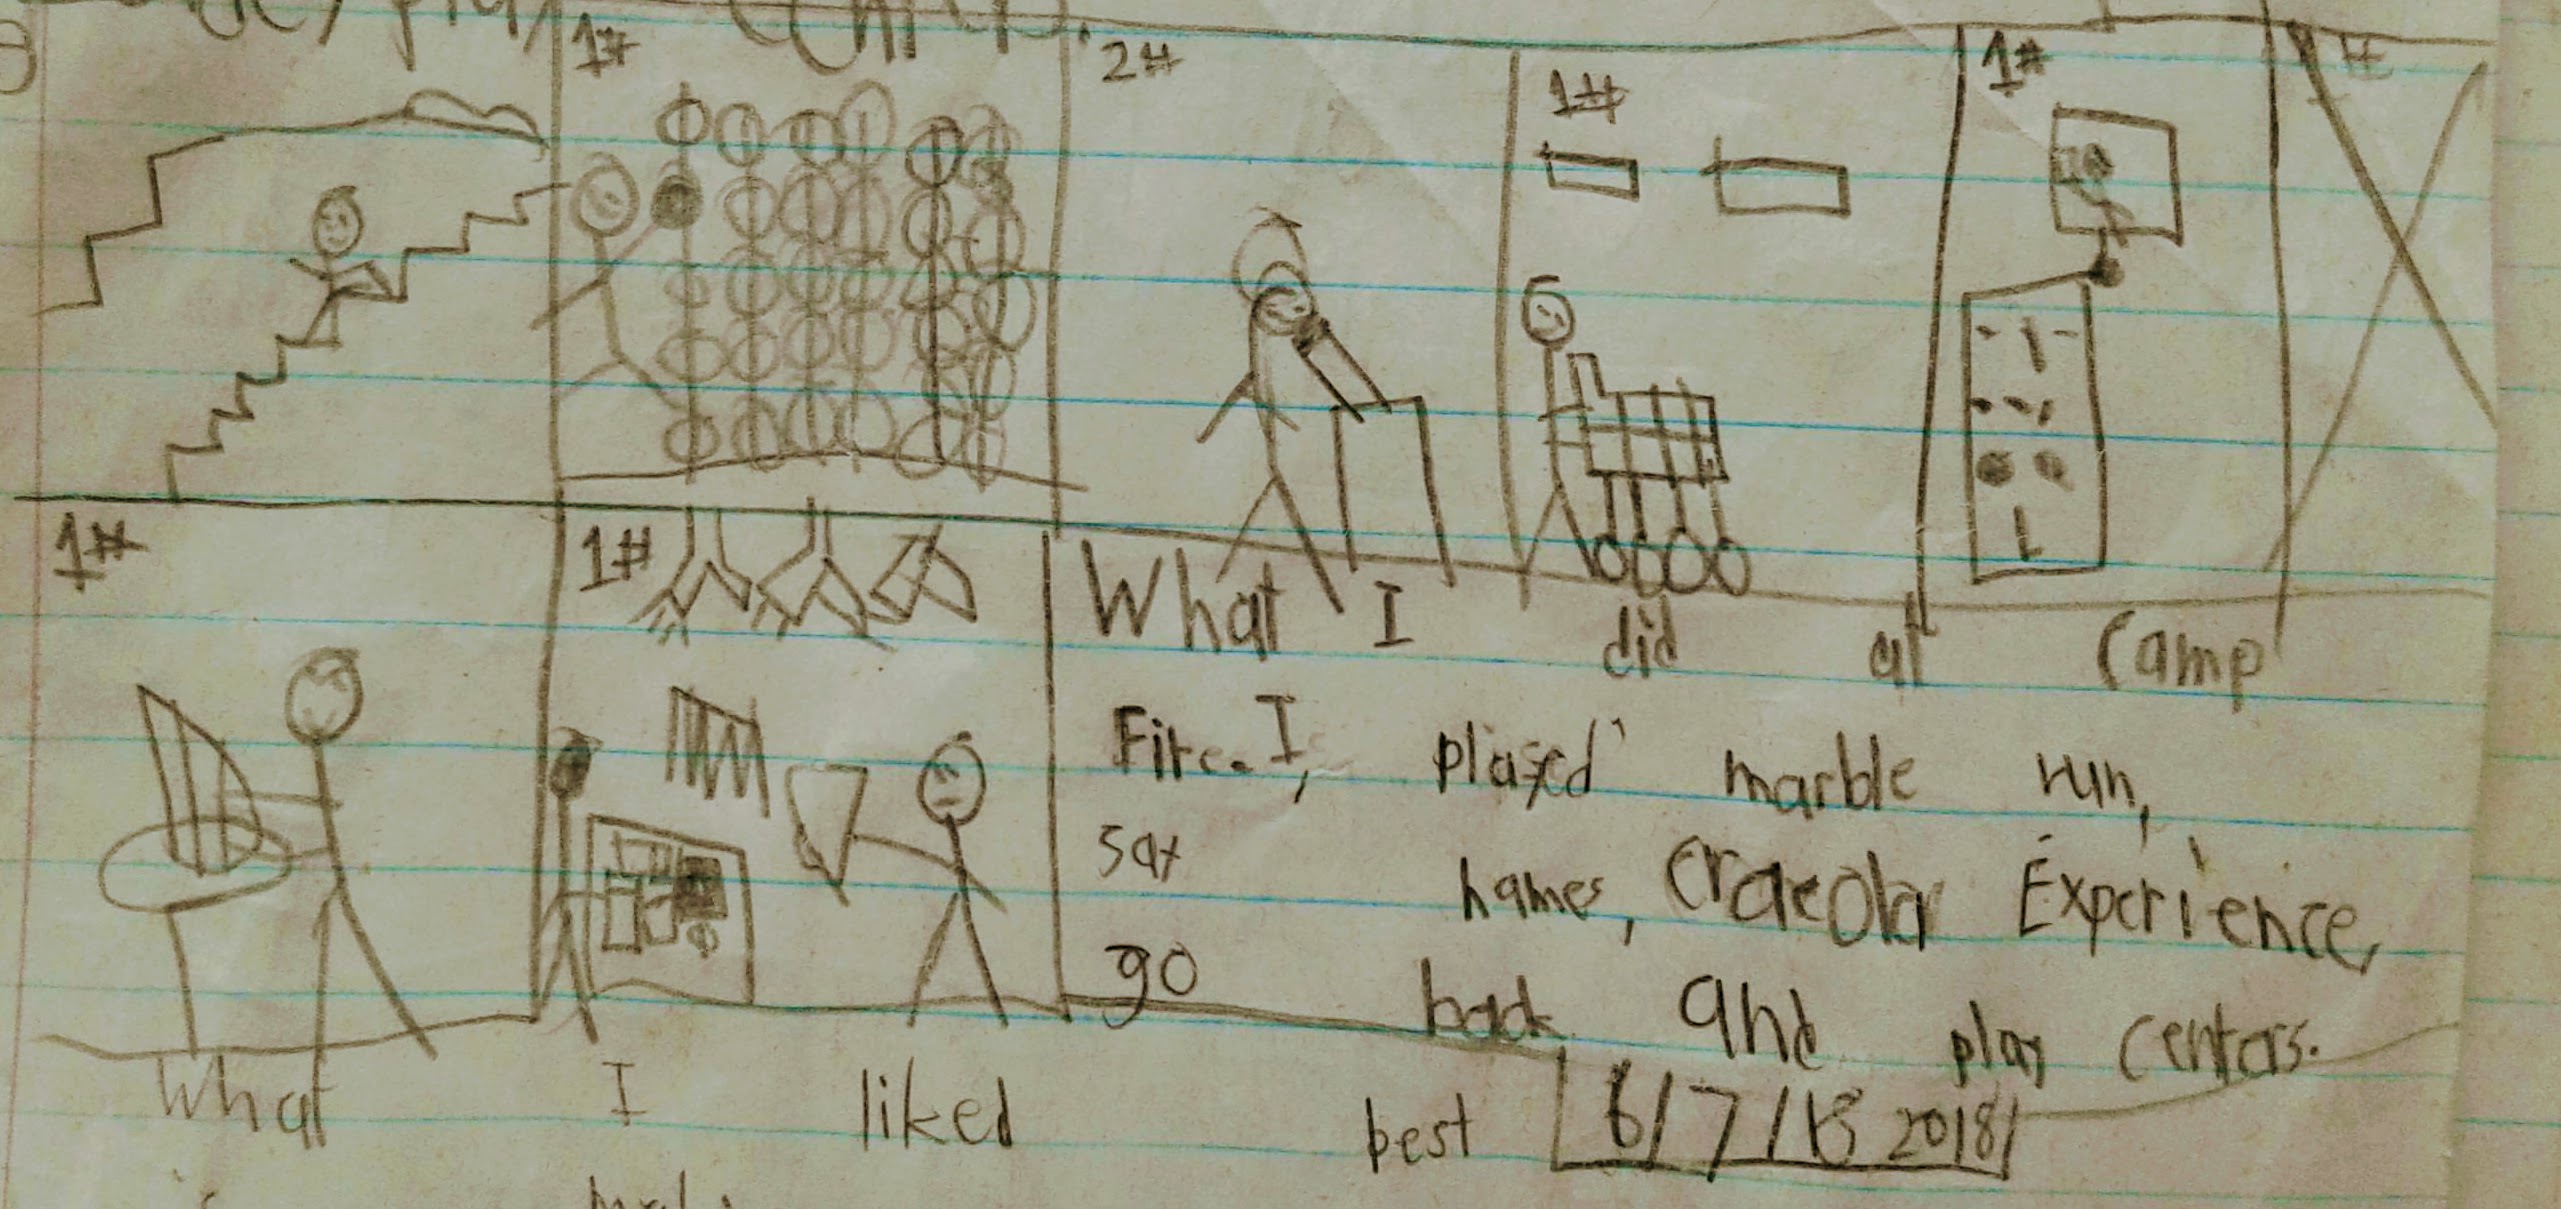 play
1#
2#
1#
1#
1#
1#
What I did at Camp
Fire. I, played marble run,
sat names, Craeola Experience,
go back and play centars.
What I liked best 6/7/18 2018